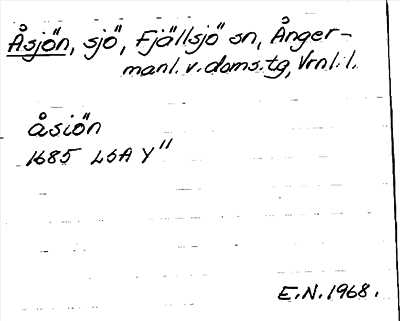 Åsjön, sjö, Fjällsjö sn, Ånger-
manl. v. doms. tg, Vrnl. l.
åsiön
1685 LSA Y"
E.N. 1968.